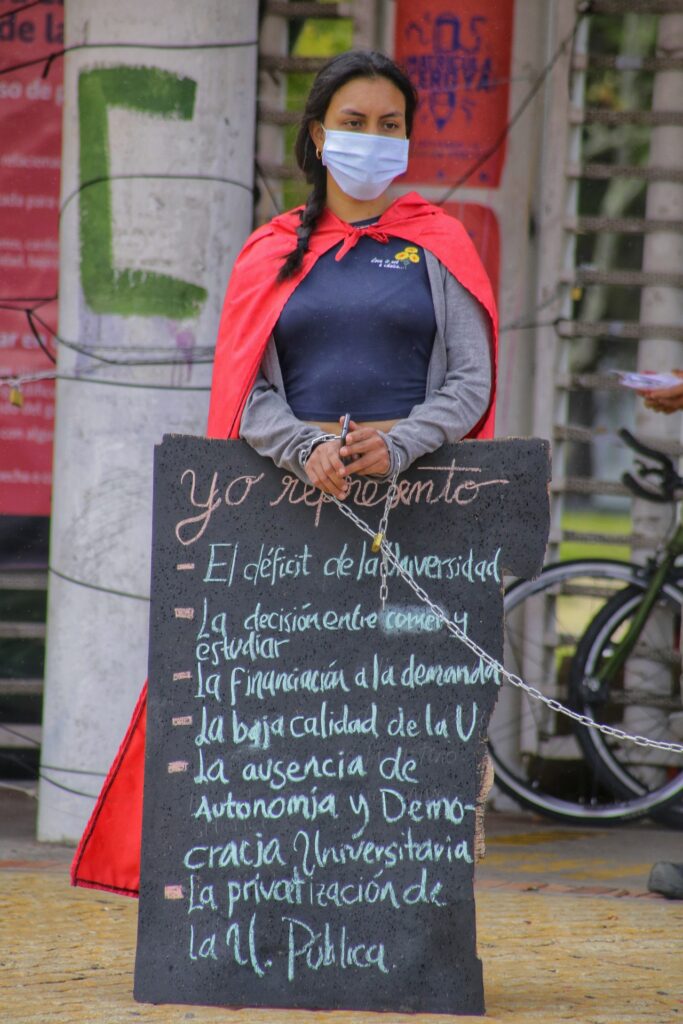 de la
so de
relaciona
tada para
MATRÍCULA
CERO YA
Yo represento
- El déficit de la Universidad
- La decisión entre comer y
estudiar
- La financiación a la demanda
- La baja calidad de la U
- La ausencia de
Autonomía y Demo-
cracia Universitaria
- La privatización de
la U. Pública.